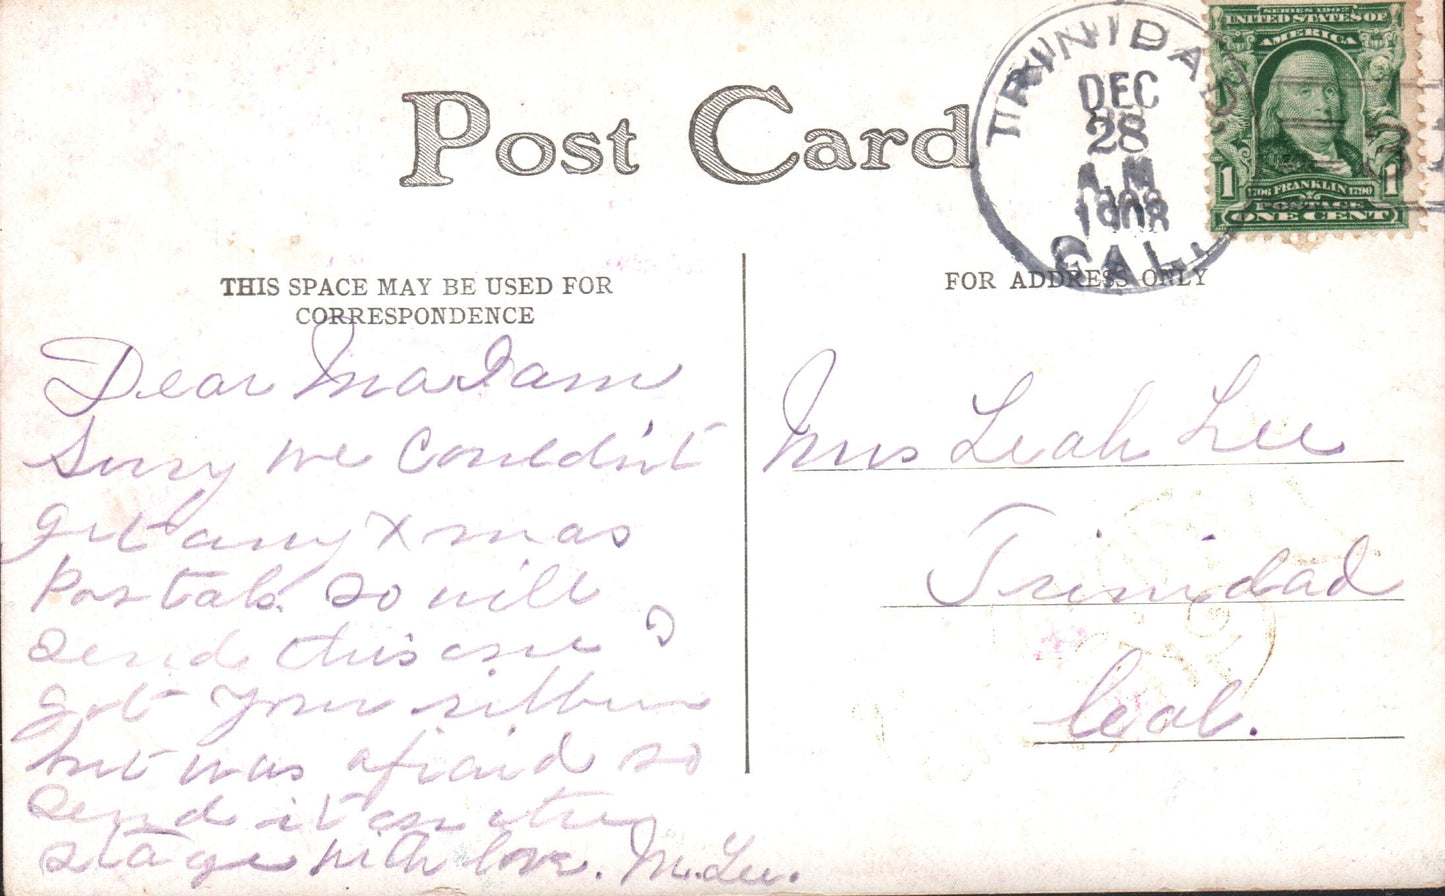 Post Card
TRINIDAD
DEC
28
A.M
1908
CAL.
SERIES 1902
UNITED STATES OF
AMERICA
1
1706 FRANKLIN 1790
1
POSTAGE
ONE CENT
THIS SPACE MAY BE USED FOR
CORRESPONDENCE
FOR ADDRESS ONLY
Dear Madam
Sorry we Couldn't
get any Xmas
Postals so will
send this one I
got your ribbon
but was afraid to
send it on the
stage with love. M. Lee.
Mrs Leah Lee
Trinidad
Cal.